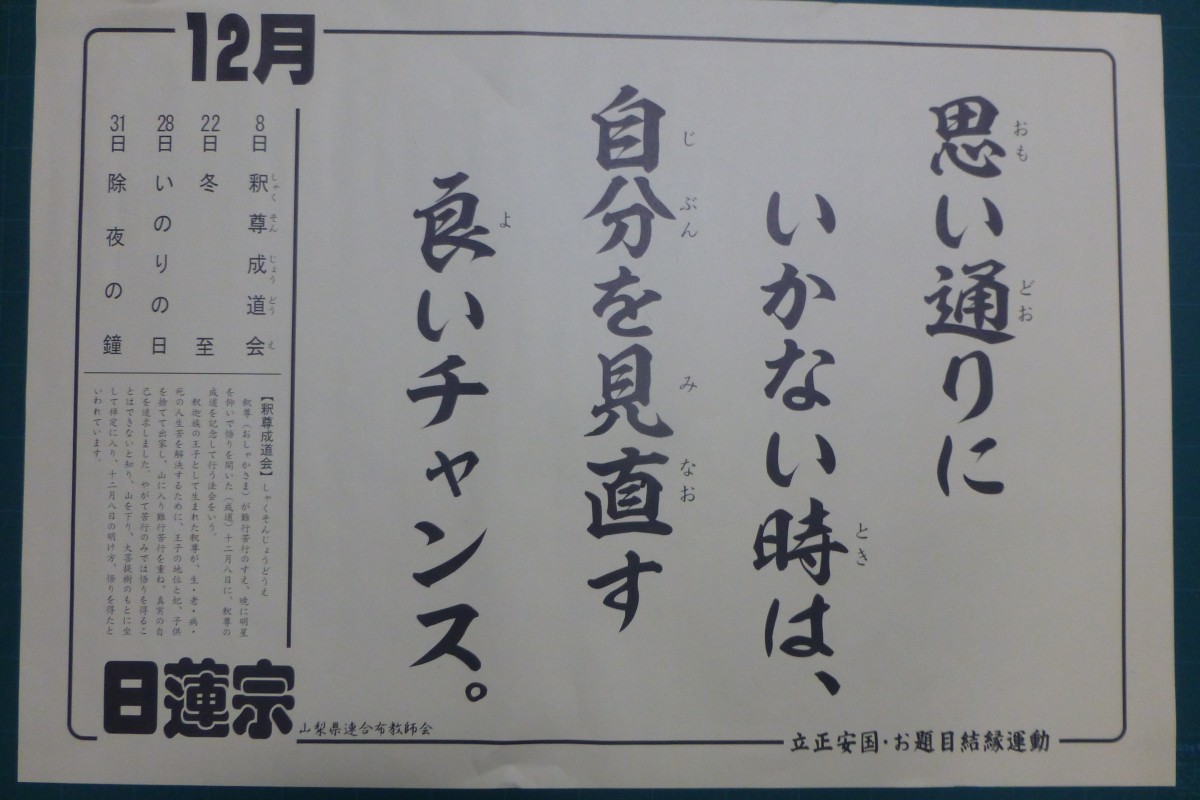 12月
思い通りに
いかない時は、
自分を見直す
良いチャンス。
8日 釈尊成道会
22日 冬至
28日 いのりの日
31日 除夜の鐘
【釈尊成道会】しゃくそんじょうどうえ
釈尊(おしゃかさま)が難行苦行のすえ、暁に明星
を仰いで悟りを開いた(成道)十二月八日に、釈尊の
成道を記念して行う法会をいう。
釈迦族の王子として生まれた釈尊が、生・老・病・
死の人生苦を解決するために、王子の地位と妃、子供
を捨てて出家し、山に入り難行苦行を重ね、真実の自
己を追求しました。やがて苦行のみでは悟りを得るこ
とはできないと知り、山を下り、大菩提樹のもとに坐
して禅定に入り、十二月八日の明け方、悟りを得たと
いわれています。
日蓮宗
山梨県連合布教師会
立正安国・お題目結縁運動